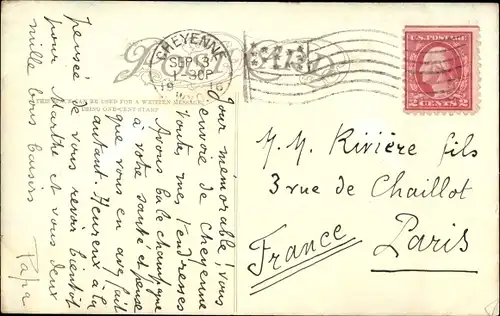 CHEYENNE
SEP 3
1-30P
19
U.S. POSTAGE
2 CENTS 2
THIS SPACE CAN BE USED FOR A WRITTEN MESSAGE
Jour mémorable! vous
envoie de Cheyenne
toutes mes tendresses
Avons bu le champagne
à votre santé et pense
que vous en avez fait
autant. Heureux à la
pensée de vous revoir bientôt
pour Marthe et vous deux
mille bons baisers
Papa
M. M. Rivière fils
3 rue de Chaillot
Paris
France